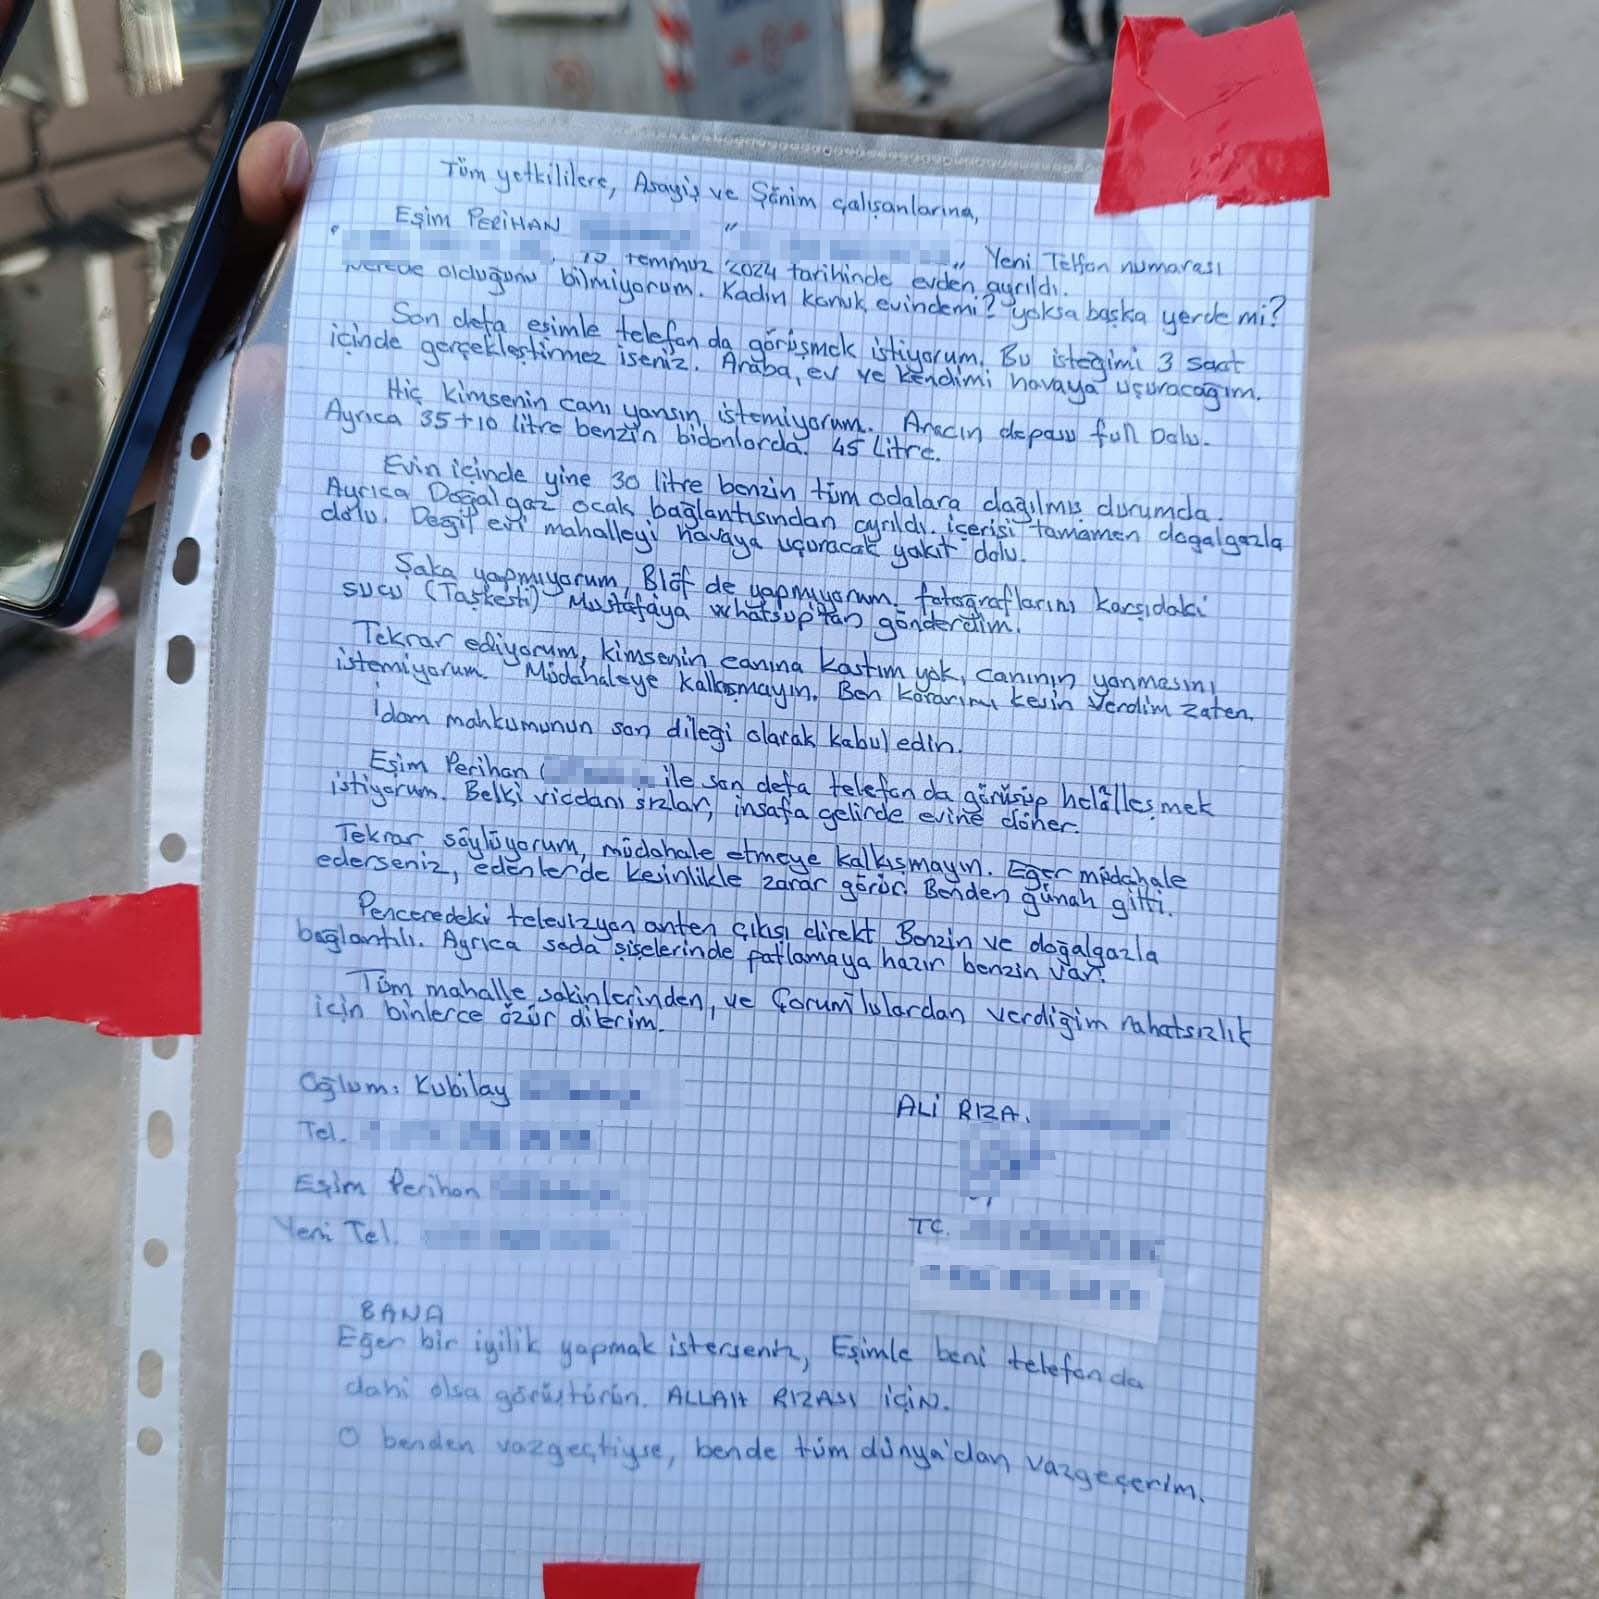 Tüm yetkililere, Asayiş ve Şönim çalışanlarına,
Eşim PERİHAN " "
" Yeni Telfon numarası
, 10 Temmuz 2024 tarihinde evden ayrıldı.
Nerede olduğunu bilmiyorum. Kadın konuk evindemi? yoksa başka yerde mi?
Son defa eşimle telefon da görüşmek istiyorum. Bu isteğimi 3 saat
içinde gerçekleştirmez iseniz. Araba, ev ve kendimi havaya uçuracağım.
Hiç kimsenin canı yansın istemiyorum. Aracın deposu full Dolu.
Ayrıca 35+10 litre benzin bidonlarda. 45 Litre.
Evin içinde yine 30 litre benzin tüm odalara dağılmış durumda.
Ayrıca Doğal gaz ocak bağlantısından ayrıldı. içerisi tamamen doğalgazla
dolu. Değil evi mahalleyi havaya uçuracak yakıt dolu.
Şaka yapmıyorum, Blöf de yapmıyorum. fotoğraflarını karşıdaki
sucu (Taşkesti) Mustafaya whatsup'tan gönderdim.
Tekrar ediyorum, kimsenin canına kastım yok, canının yanmasını
istemiyorum. Müdahaleye kalkışmayın. Ben kararımı kesin Verdim zaten.
İdam mahkumunun son dileği olarak kabul edin.
Eşim Perihan ( ile son defa telefon da görüşüp helâlleşmek
istiyorum. Belki vicdanı sızlar, insafa gelirde evine döner.
Tekrar söylüyorum, müdahale etmeye kalkışmayın. Eğer müdahale
ederseniz, edenlerde kesinlikle zarar görür. Benden günah gitti.
Penceredeki televizyon anten çıkışı direkt, Benzin ve doğalgazla
bağlantılı. Ayrıca soda şişelerinde patlamaya hazır benzin var.
Tüm mahalle sakinlerinden, ve Çorum'lulardan verdiğim rahatsızlık
için binlerce özür dilerim.
Oğlum: Kubilay
ALİ RIZA.
Tel.
Eşim Perihan
Yeni Tel.
TC.
BANA
Eğer bir iyilik yapmak isterseniz, Eşimle beni telefon da
dahi olsa görüştürün. ALLAH RIZASI İÇİN.
O benden vazgeçtiyse, bende tüm dünya'dan vazgeçerim.